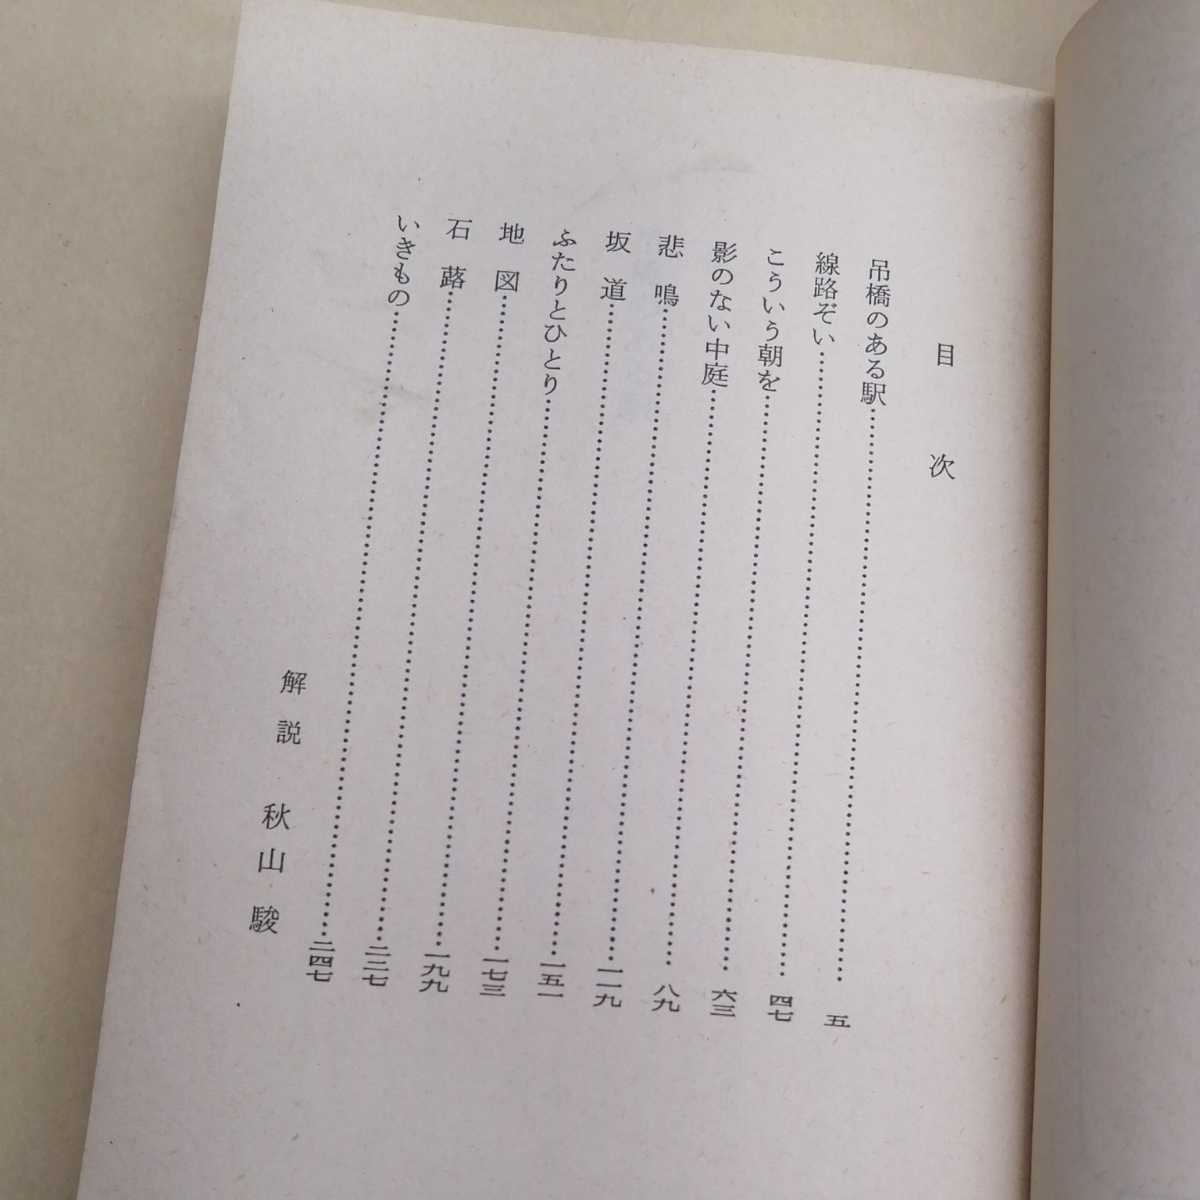 目次
吊橋のある駅……五
線路ぞい……四七
こういう朝を……六三
影のない中庭……八九
悲鳴……一一九
坂道……一五一
ふたりとひとり……一七三
地図……一九九
石蕗……二二七
いきもの……二四七
解説 秋山駿